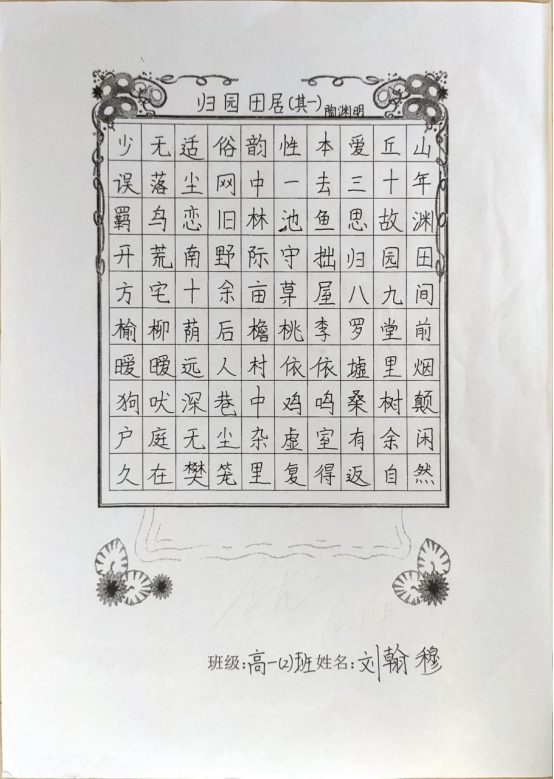 归园田居(其一)陶渊明
少无适俗韵性本爱丘山
误落尘网中一去三十年
羁鸟恋旧林池鱼思故渊
开荒南野际守拙归园田
方宅十余亩草屋八九间
榆柳荫后檐桃李罗堂前
暧暧远人村依依墟里烟
狗吠深巷中鸡鸣桑树颠
户庭无尘杂虚室有余闲
久在樊笼里复得返自然
班级:高一(2)班姓名:刘翰穆